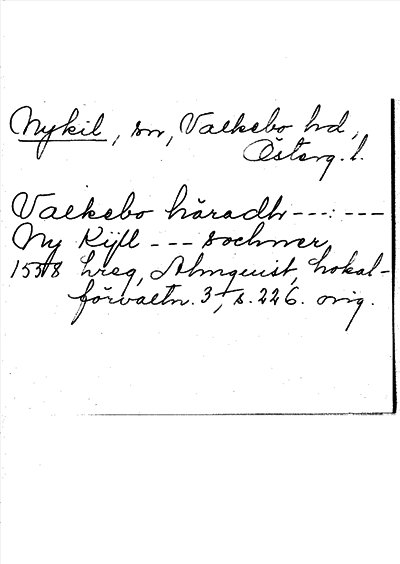 Nykil, sn, Valkebo hd,
Österg. l.
Valkebo häradh ---:---
Ny Kijll --- sochner
1558 hreg, Almquist, Lokal-
förvaltn. 3, s. 226. orig.